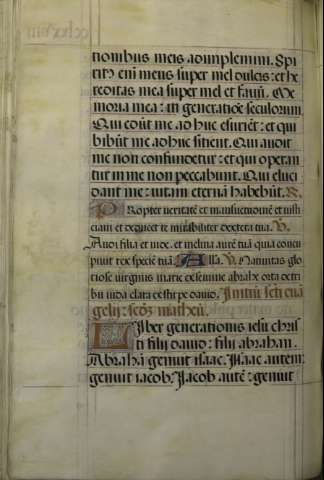 tionibus meis adimplemini. Spi
ritꝰ eni meus super mel dulcis: et he
reditas mea super mel et fauū. Me
moria mea: in generatiōe seculorum
Qui edūt me adhuc esuriēt: et qui
bibūt me adhuc sitient. Qui audit
me non confundetur: et qui operan
tur in me non peccabunt. Qui eluci
dant me: uitam eternā habebūt. R.
Propter ueritatē et mansuetudinē et iusti
ciam et deducet te mirabiliter dextera tua. V.
Audi filia et uide, et inclina aurē tuā quia concu
piuit rex speciē tuā. Alla. V. Natiuitas glo
riose uirginis marie ex semine abrahe orta de tri
bu iuda clara ex stirpe dauid. Initiū scti euā
gelij: scdȝ matheū.
Liber generationis iesu chris
ti filij dauid: filij abraham.
Abrahā genuit isaac. Isaac autem
genuit iacob. Iacob autē: genuit